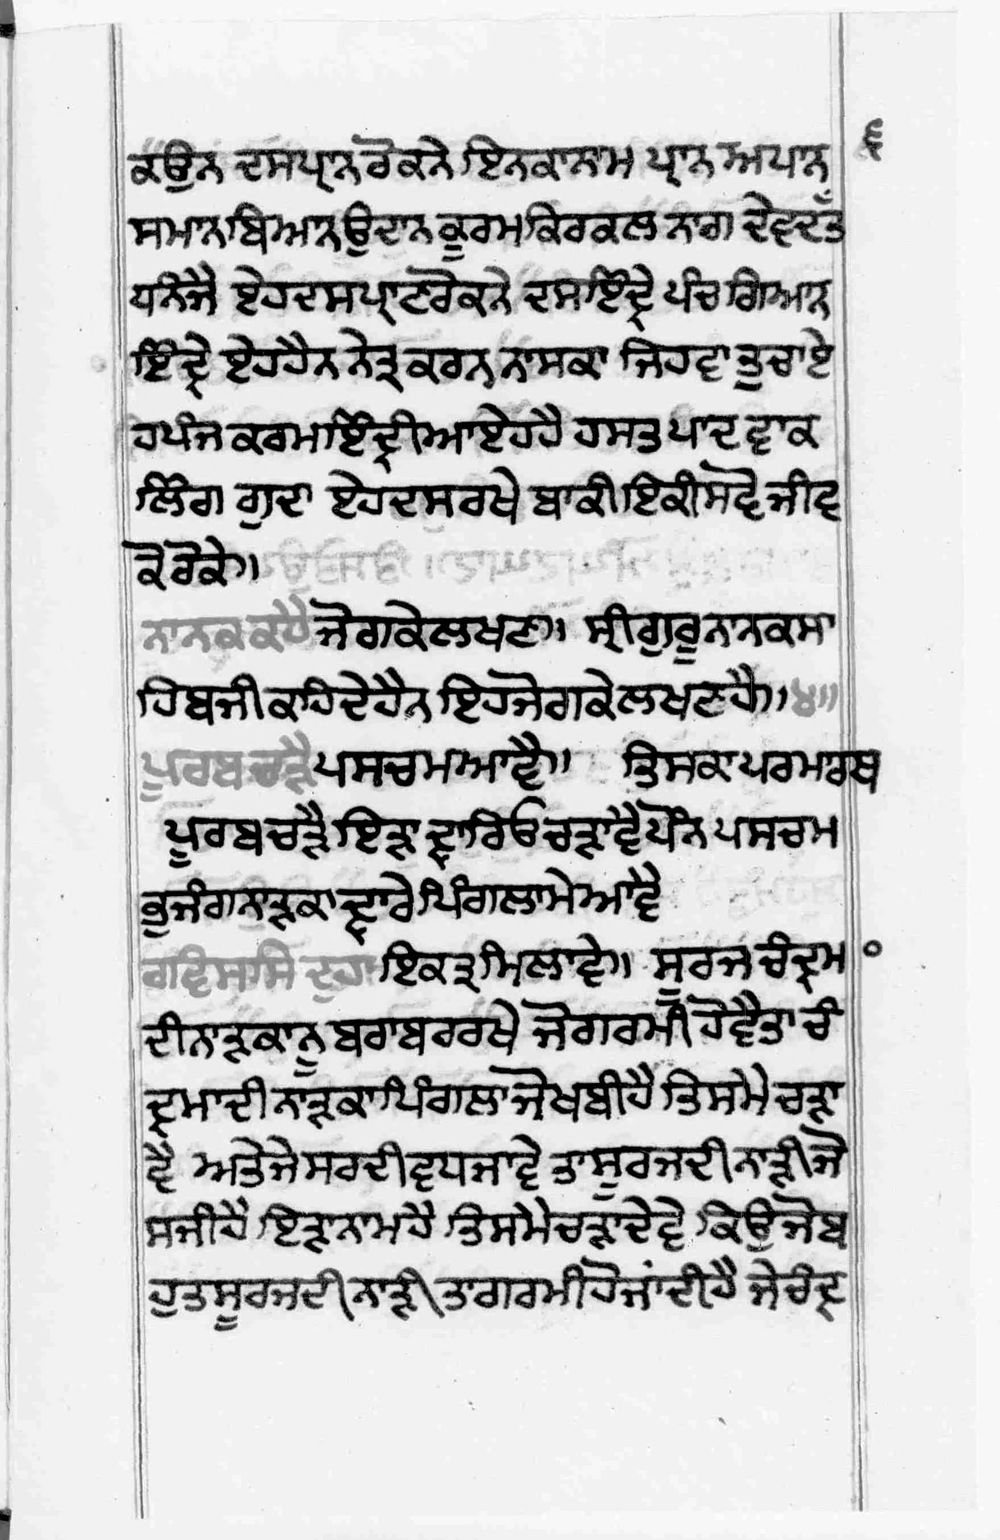 ੬
ਕਉਨ ਦਸ ਪ੍ਰਾਨ ਰੋਕਨੇ ਇਨਕਾ ਨਾਮ ਪ੍ਰਾਨ ਅਪਾਨ
ਸਮਾਨ ਬਿਆਨ ਉਦਾਨ ਕੂਰਮ ਕਿਰਕਲ ਨਾਗ ਦੇਵਦੱਤ
ਧਨੰਜੈ ਏਹ ਦਸ ਪ੍ਰਾਣ ਰੋਕਨੇ ਦਸ ਇੰਦ੍ਰੇ ਪੰਚ ਗਿਆਨ
ਇੰਦ੍ਰੇ ਏਹ ਹੈਨ ਨੇਤ੍ਰ ਕਰਨ ਨਾਸਕਾ ਜਿਹਵਾ ਤੁਚਾ ਏ
ਹ ਪੰਜ ਕਰਮ ਇੰਦ੍ਰੀਆ ਏਹ ਹੈ ਹਸਤ ਪਾਦ ਵਾਕ
ਲਿੰਗ ਗੁਦਾ ਏਹ ਦਸ ਰਖੇ ਬਾਕੀ ਇਕੀਸਵੇ ਜੀਵ
ਕੋ ਰੋਕੇ॥
ਨਾਨਕ ਕਹੈ ਜੋਗ ਕੇ ਲਖਣ॥ ਸ੍ਰੀ ਗੁਰੂ ਨਾਨਕ ਸਾ
ਹਿਬ ਜੀ ਕਹਿਦੇ ਹੈਨ ਇਹ ਜੋਗ ਕੇ ਲਖਣ ਹੈ॥੪॥
ਪੂਰਬ ਚੜੈ ਪਸਚਮ ਆਵੈ॥ ਤਿਸਕਾ ਪਰਮਾਰਥ
ਪੂਰਬ ਚੜੈ ਇੜਾ ਦ੍ਵਾਰਿਓ ਚੜਾਵੈ ਪੌਨ ਪਸਚਮ
ਭੁਜੰਗ ਨਾੜਕਾ ਦ੍ਵਾਰੇ ਪਿੰਗਲਾ ਮੇ ਆਵੈ
ਰਵਿ ਸਸਿ ਦੁਹ ਇਕਤ੍ਰ ਮਿਲਾਵੇ॥ ਸੂਰਜ ਚੰਦ੍ਰਮਾ
ਦੀ ਨਾੜਕਾ ਨੂ ਬਰਾਬਰ ਰਖੇ ਜੋ ਗਰਮੀ ਹੋਵੈ ਤਾ ਚੰ
ਦ੍ਰਮਾ ਦੀ ਨਾੜਕਾ ਪਿੰਗਲਾ ਜੋ ਖਬੀ ਹੈ ਤਿਸ ਮੇ ਚੜਾ
ਵੈ ਅਤੇ ਜੇ ਸਰਦੀ ਵਧ ਜਾਵੇ ਤਾ ਸੂਰਜ ਦੀ ਨਾੜੀ ਜੋ
ਸਜੀ ਹੈ ਇੜਾ ਨਾਮ ਹੈ ਤਿਸ ਮੇ ਚੜਾ ਦੇਵੇ ਕਿਉ ਜੋ ਬ
ਹੁਤ ਸੂਰਜ ਦੀ ਨਾੜੀ ਤਾ ਗਰਮੀ ਹੋ ਜਾਂਦੀ ਹੈ ਜੇ ਚੰਦ੍ਰ